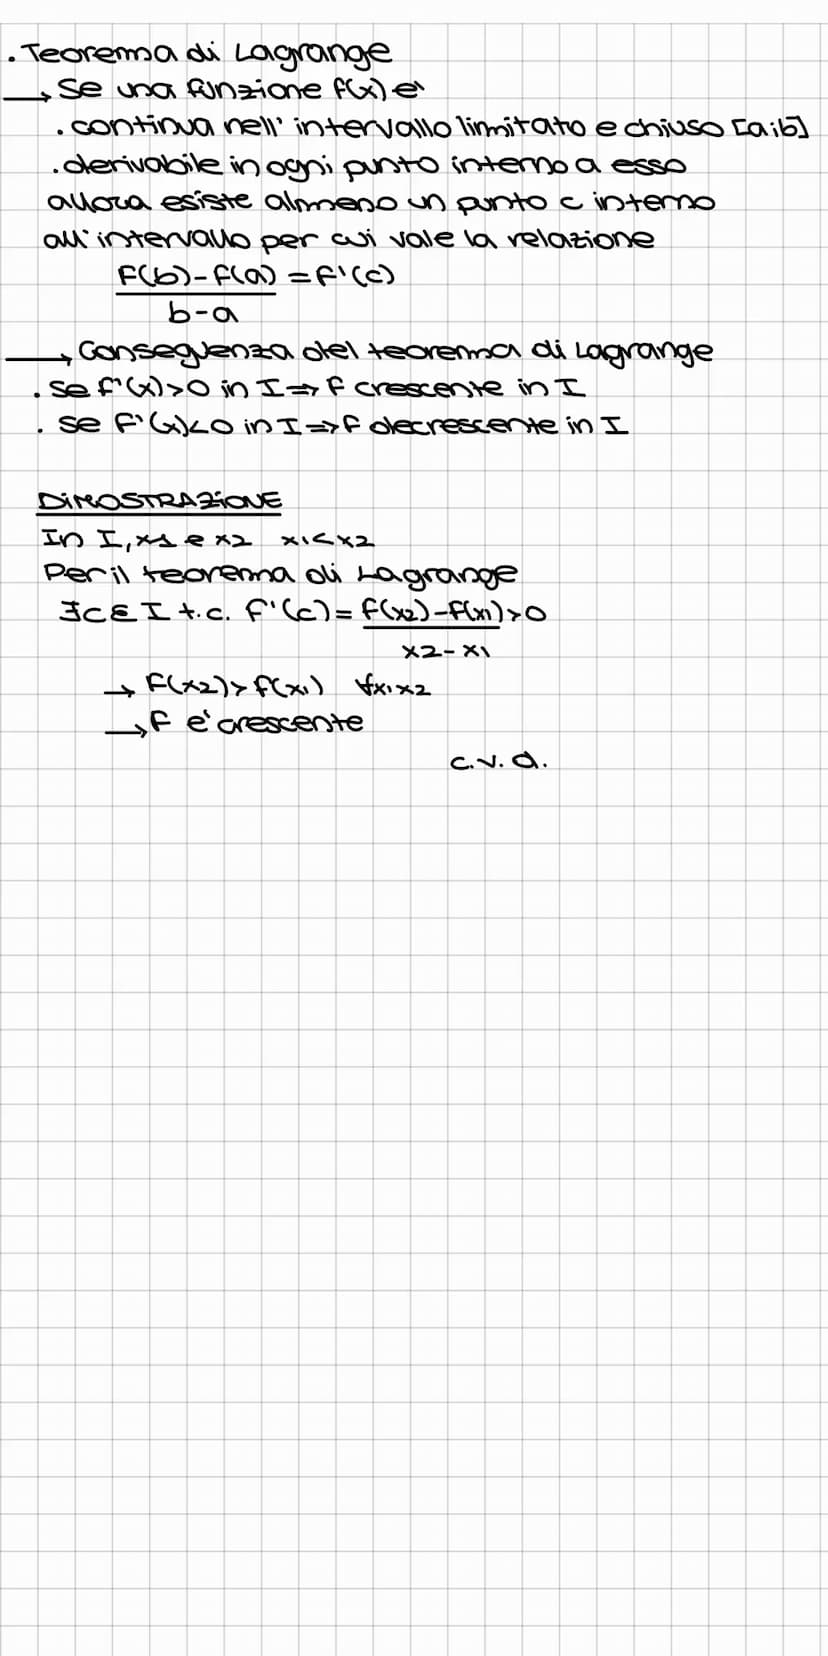 . Teorema di Lagrange
→ Se una funzione f(x) e'
. continua nell' intervallo limitato e chiuso [a;b]
. derivabile in ogni punto interno a esso
allora esiste almeno un punto c interno
all'intervallo per cui vale la relazione
f(b)-f(a) = f'(c)
b-a
→ Conseguenza del teorema di Lagrange
. se f'(x)>0 in I ⇒ f crescente in I
. se f'(x)<0 in I ⇒ f decrescente in I
DIMOSTRAZIONE
In I, x1 e x2 x1<x2
Per il teorema di Lagrange
∃c∈I t.c. f'(c) = f(x2)-f(x1) >0
x2-x1
→ f(x2)>f(x1) ∀x1x2
→ f e' crescente
c.v.d.